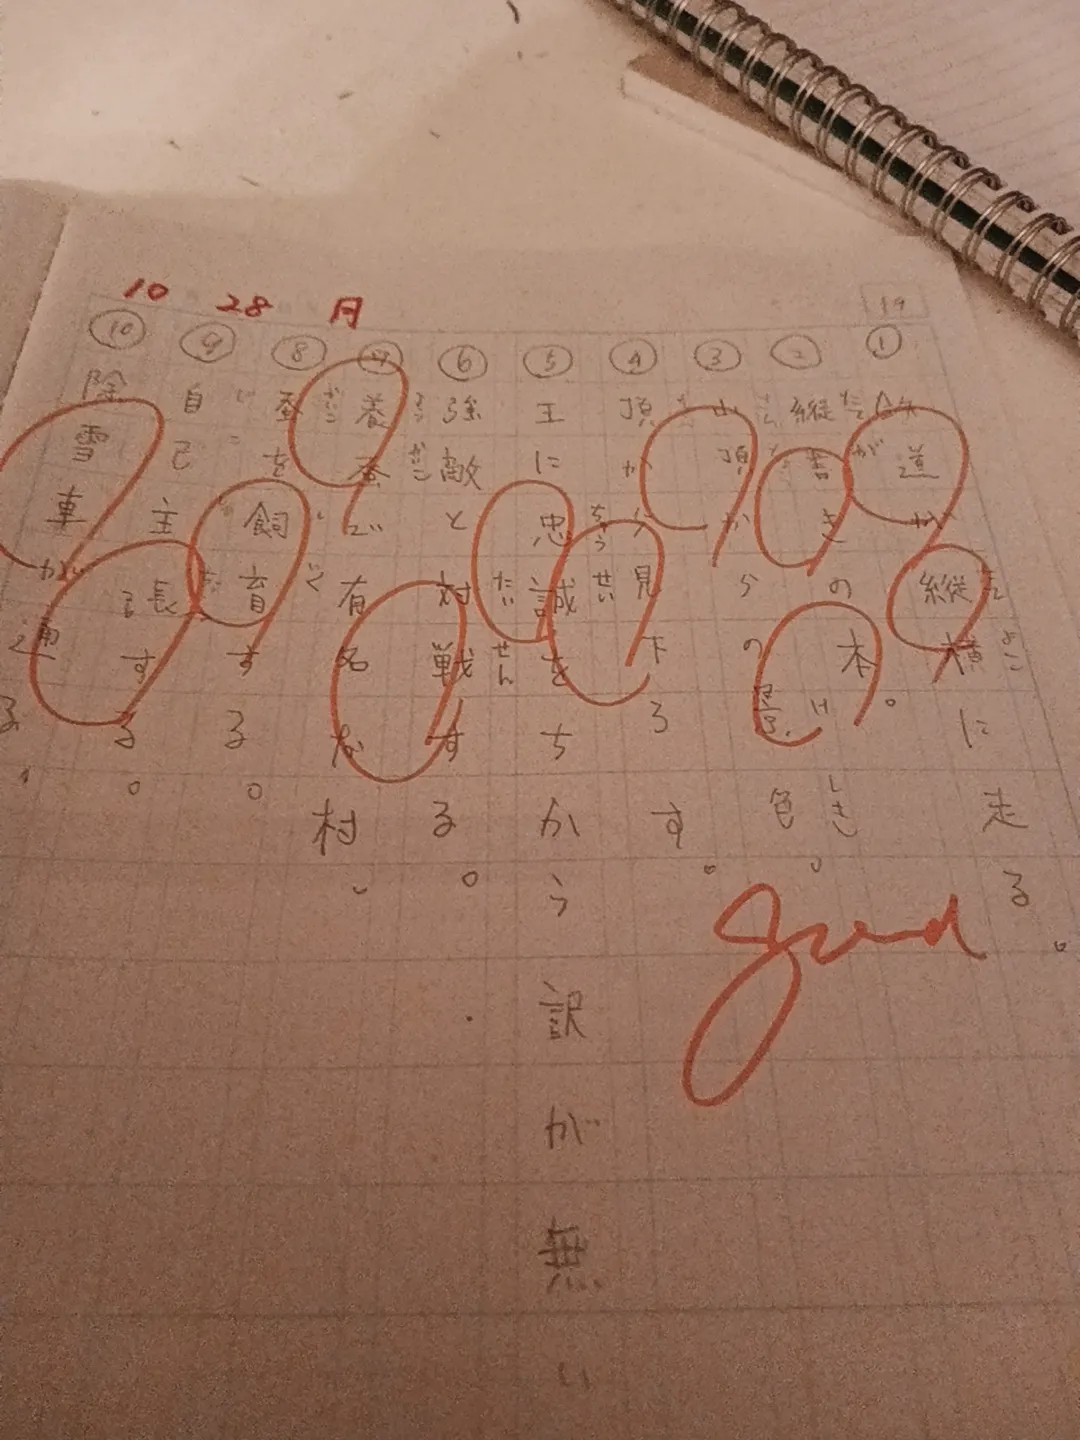 10 28 月
19
① 鉄道が縦横に走る。
② 縦書きの本。
③ 山頂からの景色。
④ 頂から見下ろす。
⑤ 王に忠誠をちかう訳が無い
⑥ 強敵と対戦する。
⑦ 養蚕で有名な村。
⑧ 蚕を飼育する。
⑨ 自己主長する。
⑩ 除雪車が通る。
good